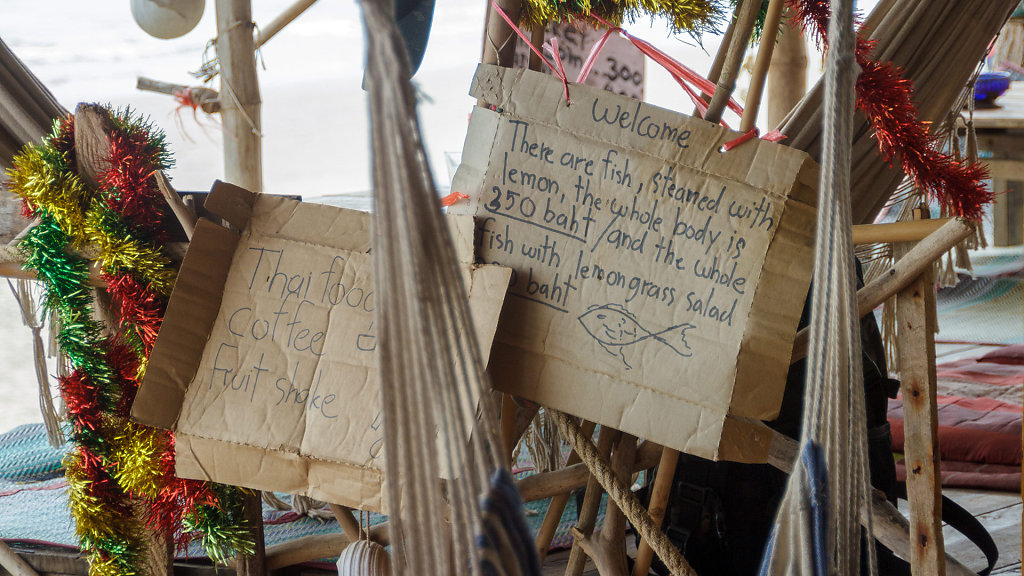 300
Welcome
There are fish, steamed with
lemon, the whole body is
350 baht / and the whole
fish with lemongrass salad
baht
Thai food
Coffee
Fruit shake